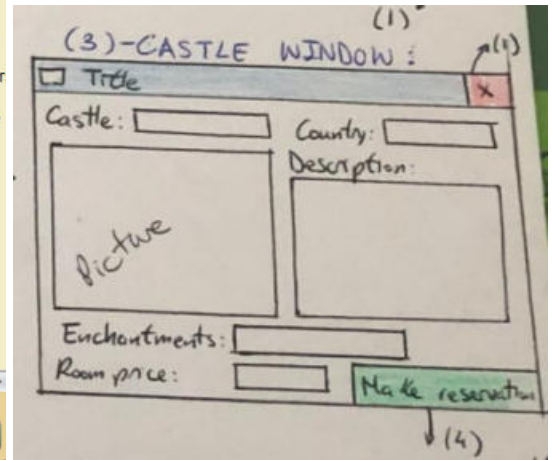 (1)
(3)-CASTLE WINDOW :
(1)
Title
X
Castle:
Country:
Description:
Picture
Enchantments:
Room price:
Make reservation
(4)